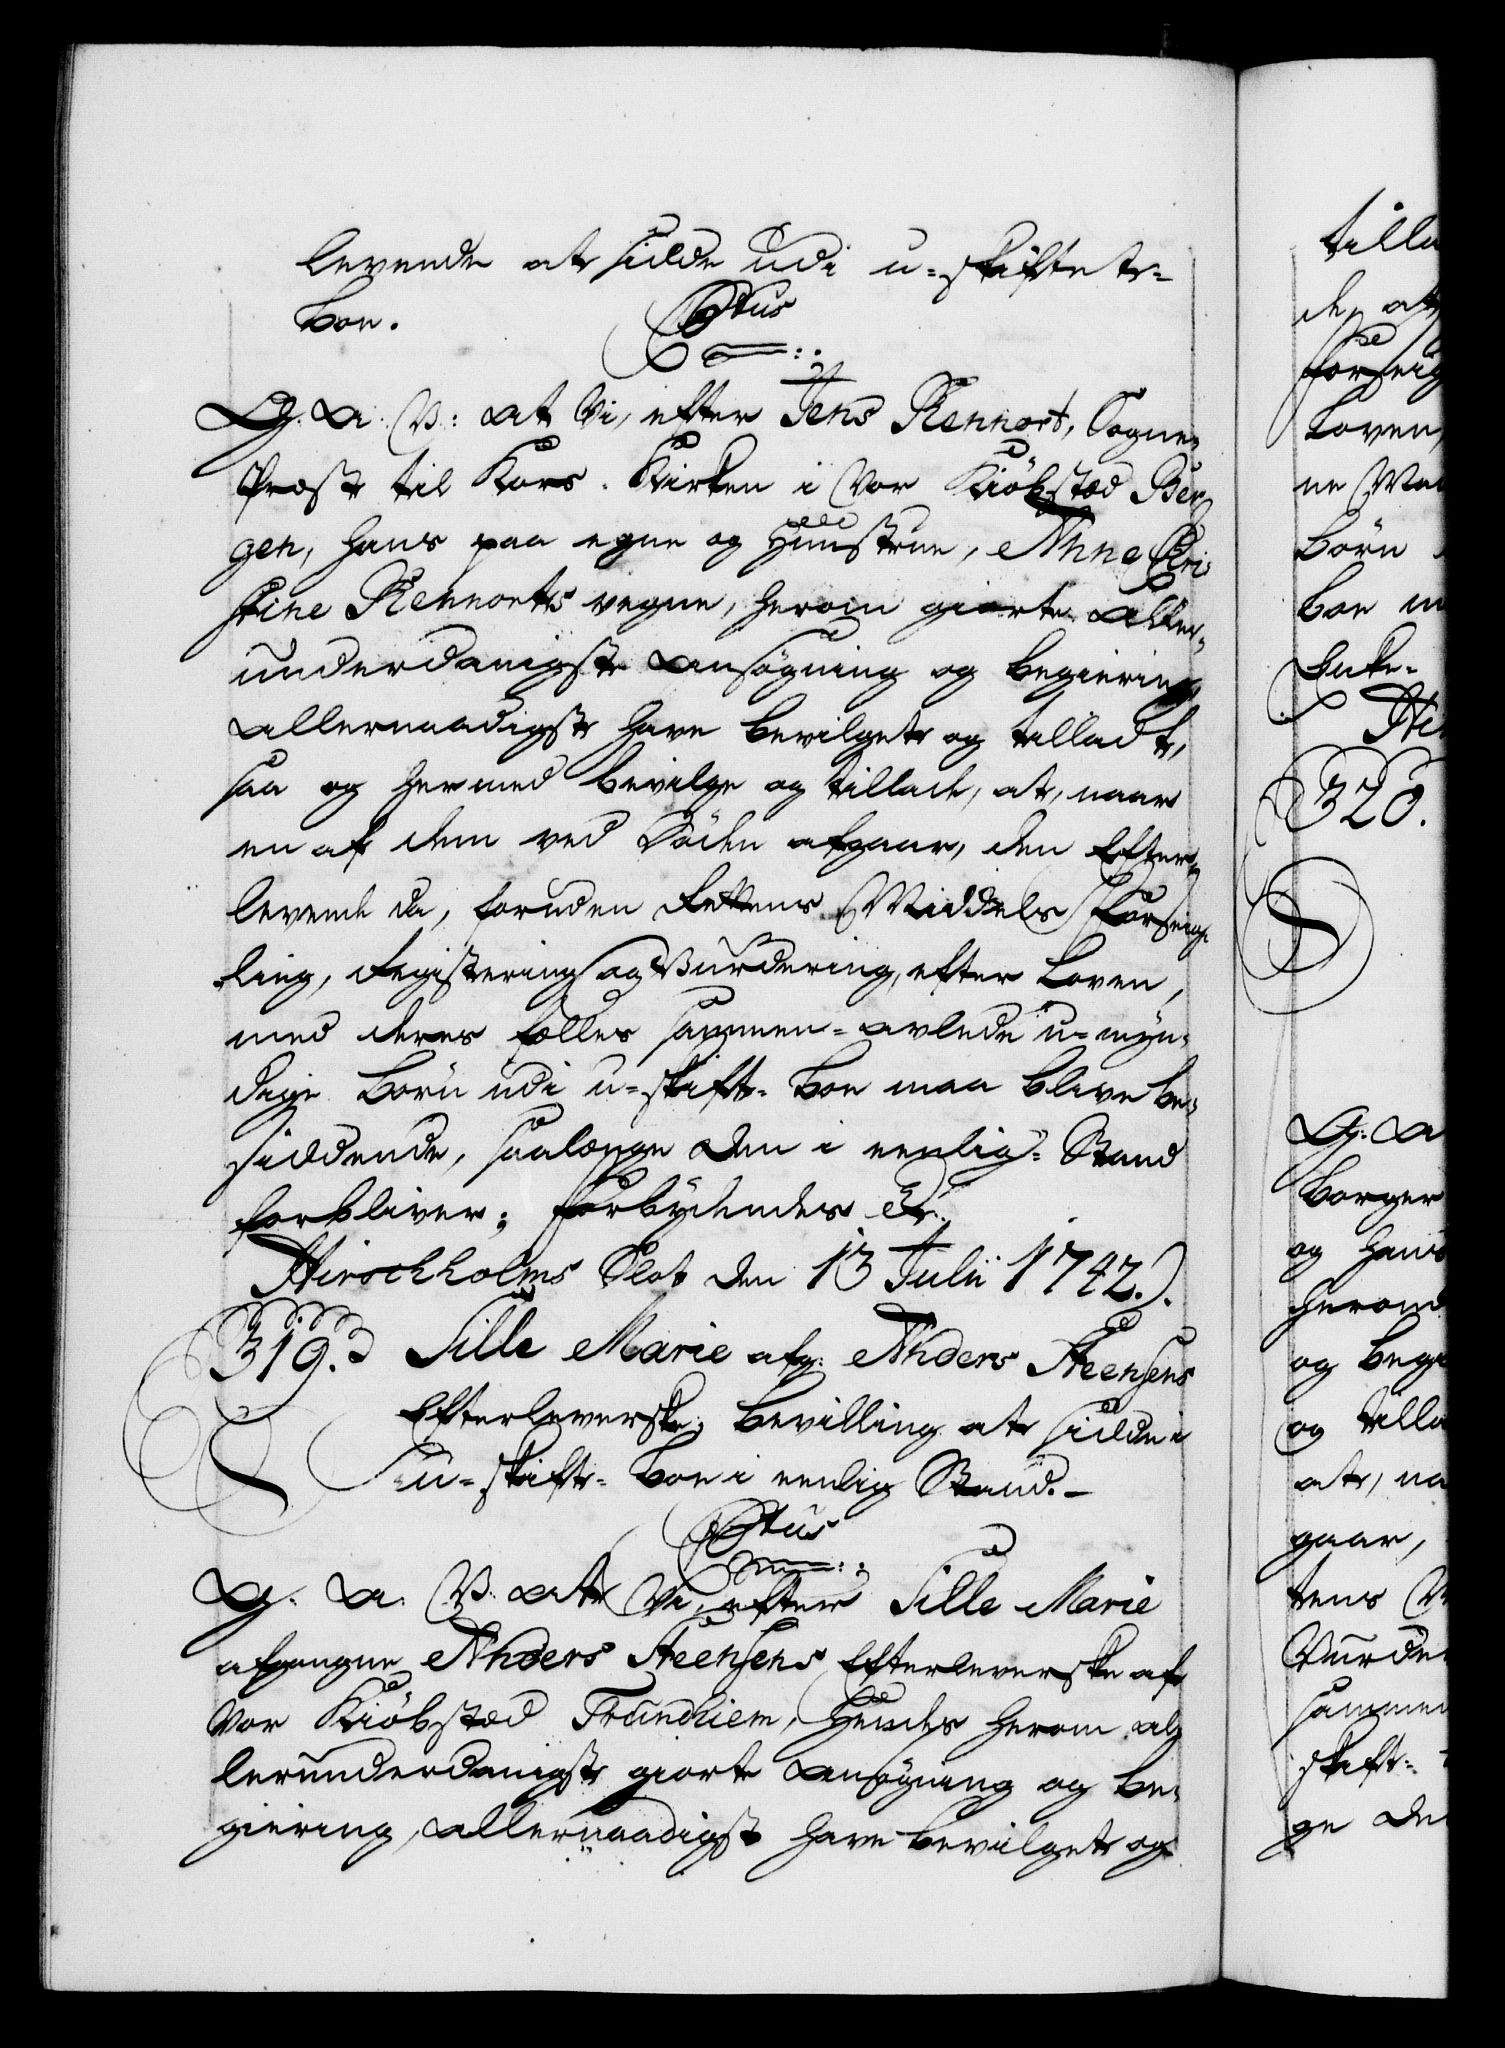 levende at sidde udi u-skiftet-
Boe.
Ctus
G. A. V: At Vi, efter Jens Rennort, Sogne-
Præst til Kors-Kirken i Vor Kiöbstæd Ber
gen, hans paa egne og Hustrue, Anne Chri
stine Rennorts vegne, herom giorte Aller-
underdanigste Ansøgning og Begiering,
Allernaadigst have bevilget og tilladt,
saa og hermed bevilge og tillade, at, naar
en af dem ved Döden afgaar, den Efter-
levende da, foruden Rettens Middels Forseig-
ling, Registering og Vurdering, efter Loven,
med deres fælles sammen-avlede u-myn-
dige Börn udi u-skift-Boe maa blive be-
siddende, saalænge den i eenlig-Stand
forbliver; Forbydendes Er.
Hirschholms Slot den 13 Julii 1742.
319. Sille Marie afg: Anders Steensens
Efterleverske, Bevilling at sidde i
u-skift-Boe i eenlig Stand.-
Ctus
G. A. V. At Vi, efter Sille Marie
afgangne Anders Steensens Efterleverske af
Vor Kiöbstæd Trundhiem, Hendes herom al-
lerunderdanigst giorte Ansøgning og Be-
giering, Allernaadigst have bevilget og
tilla
de, at
Forseig
Loven,
Börn
Boe m
Enke-
Hir
320.
G. A
Borger
og Hans
herom
og Begi
og tilla
at, na
gaar,
tens
Vurder
sammen
skift-
ge den